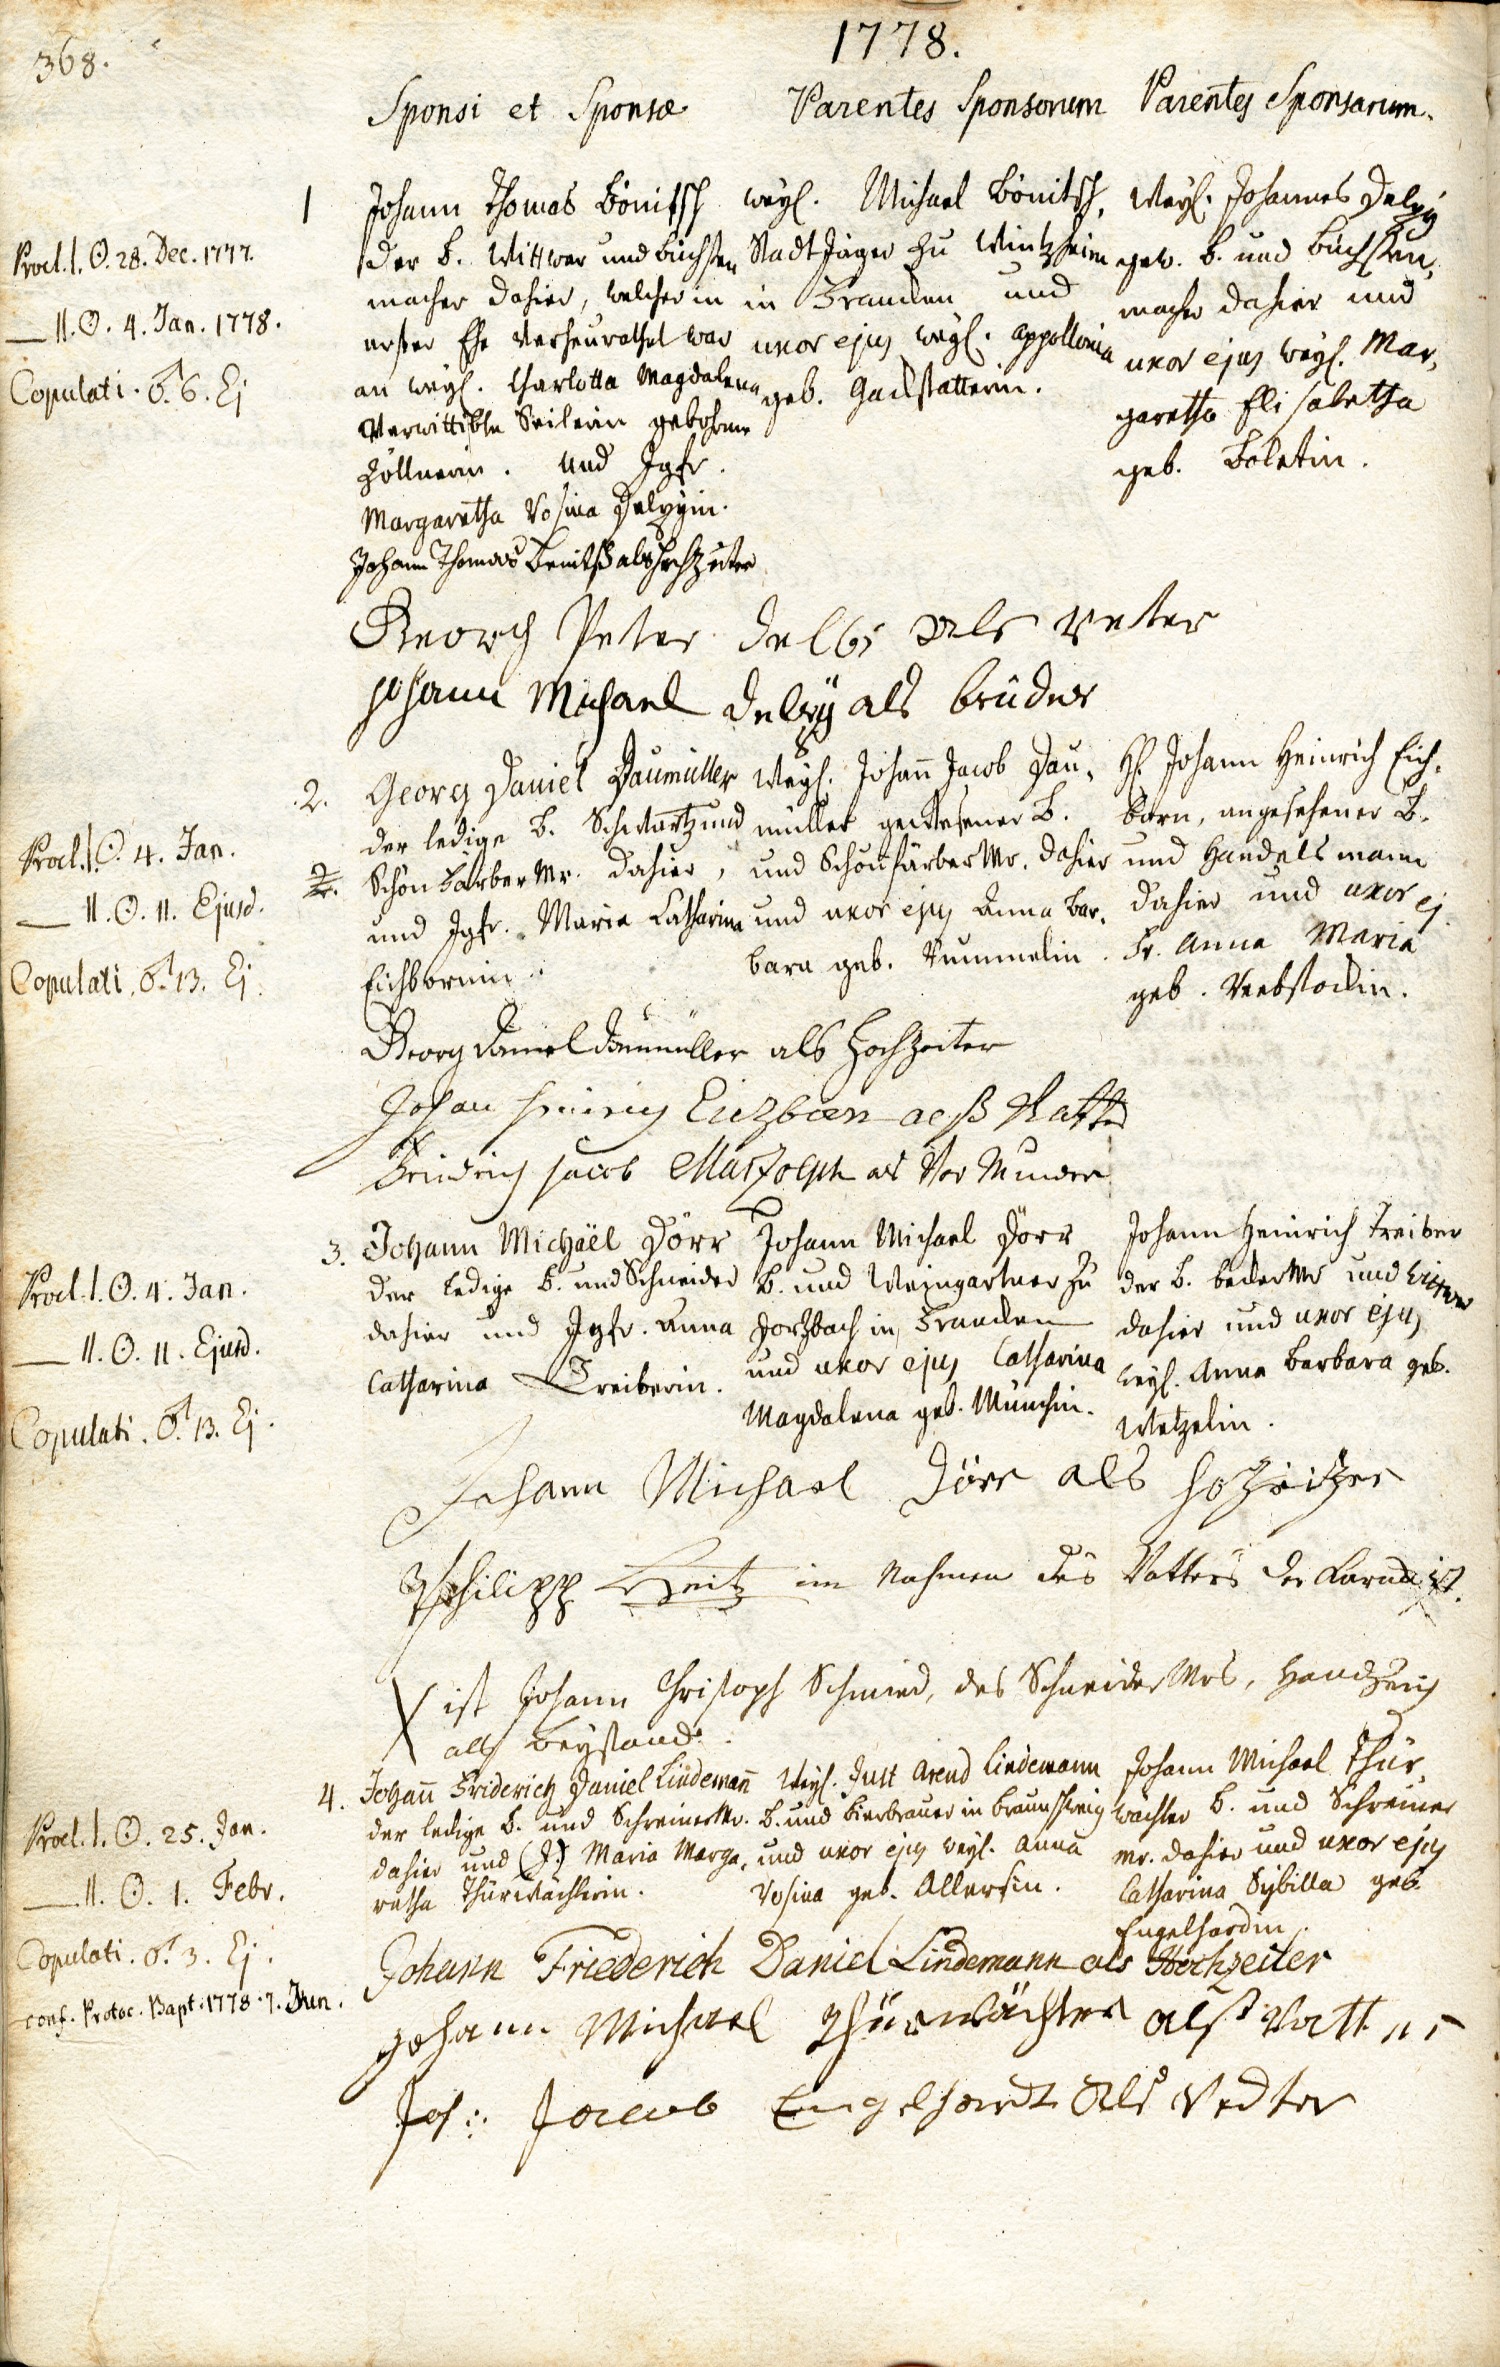 368.
1778.
Sponsi et Sponsæ
Parentes Sponsorum
Parentes Sponsarum.
Procl. I. ☉. 28. Dec. 1777.
— II. ☉. 4. Jan. 1778.
Copulati. ♂. 6. Ej
1
Johann Thomas Bönitsch
der B. Wittwer und Büchsen
macher dahier, welcher in
erster Ehe verheurathet war
an weyl. Charlotta Magdalena
Verwittibte Seilerin gebohrne
Zöllnerin. und Jgfr.
Margaretha Rosina Delzyin.
weyl. Michael Bönitsch,
Stadt Jäger zu Wintzheim
in Francken und
uxor ejus weyl. Appollonia
geb. Gackstatterin.
Weyl. Johannes Delzy
gew. B. und Büchsen,
macher dahier und
uxor ejus weyl. Mar,
garetha Elisabetha
geb. Boletin.
Johann Thomas Benitsch als Hochzeiter
Georch Peter als Veter
Johann Michael Delzy als bruder
Procl. I. ☉. 4. Jan.
— II. ☉. 11. Ejusd.
Copulati. ♂. 13. Ej.
2.
2.
Georg Daniel Daumüller
der ledige B. Schwartz und
Schön Färber Mr. dahier,
und Jgfr. Maria Catharina
Eichbornin.
Weyl. Johann Jacob Dau,
müller gewesener B.
und Schönfärber Mr. dahier
und uxor ejus Anna Bar,
bara geb. Rummelin.
H. Johann Heinrich Eich,
born, angesehener B.
und Handelsmann
dahier und uxor ej
Fr. Anna Maria
geb. Rebstockin.
Georg Daniel Daumüller als Hochzeiter
Johan Heinrich Eichborn alß Vatter
Friedrich Jacob Marzolph als Vor Munder
Procl. I. ☉. 4. Jan.
— II. ☉. 11. Ejusd.
Copulati. ♂. 13. Ej.
3.
Johann Michaël Dörr
der ledige B. und Schneider
dahier und Jgfr. Anna
Catharina Treiberin.
Johann Michael Dörr
B. und Weingartner zu
Dorzbach in Francken
und uxor ejus Catharina
Magdalena geb. Münchin.
Johann Heinrich Treiber
der B. Beder Mr und
dahier und uxor ejus
weyl. Anna Barbara geb.
Wetzelin.
Johann Michael Dörr als Hozeitzer
Philipp Heitz im Nahmen des Vatters der
X ist Johann Christoph Schmied, des Schneider Mrs, Handzeich
als Beystand.
Procl. I. ☉. 25. Jan.
— II. ☉. 1. Febr.
Copulati. ♂. 3. Ej.
conf. Protoc. Bapt. 1778. 7. Jun.
4.
Johann Friderich Daniel Lindemann
der ledige B. und Schreiner Mr.
dahier und (J.) Maria Marga,
retha Thürwächterin.
Weyl. Just Arend Lindemann
B. und Bierbrauer in Braunschweig
und uxor ejus weyl. Anna
Rosina geb. Allersin.
Johann Michael Thür,
wächter B. und Schreiner
Mr. dahier und uxor ejus
Catharina Sybilla geb.
Engelhardin.
Johann Friederich Daniel Lindemann als Hochzeiter
Johann Michael Thürwächter alß Vatter
Joh: Jacob Engelhardt als Vedter